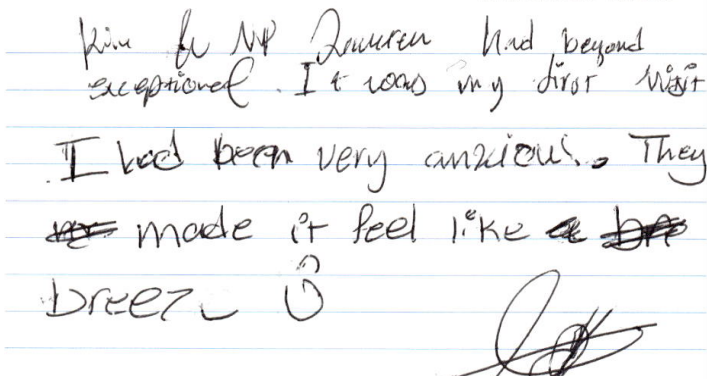 Kim & NP Lauren had beyond
exceptional. It was my first visit
I had been very anxious. They
made it feel like a
breeze